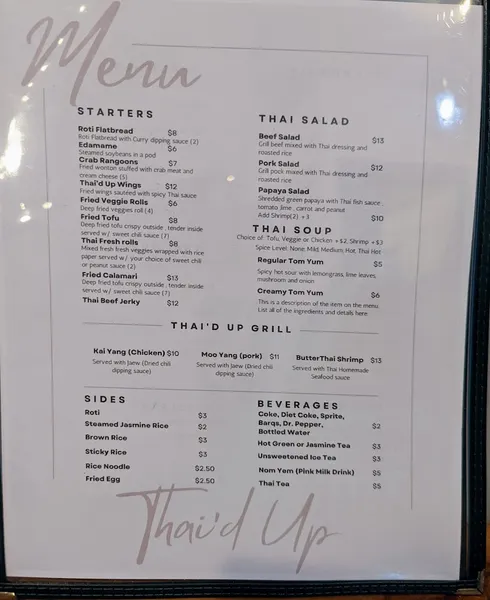 Menu
STARTERS
Roti Flatbread $8
Roti Flatbread with Curry dipping sauce (2)
Edamame $6
Steamed soybeans in a pod
Crab Rangoons $7
Fried wonton stuffed with crab meat and
cream cheese (5)
Thai'd Up Wings $12
Fried wings sauteed with spicy Thai sauce
Fried Veggie Rolls $6
Deep fried veggies roll (4)
Fried Tofu $8
Deep fried tofu crispy outside , tender inside
served w/ sweet chili sauce (7)
Thai Fresh rolls $8
Mixed fresh fresh veggies wrapped with rice
paper served w/ your choice of sweet chili
or peanut sauce (2)
Fried Calamari $13
Deep fried tofu crispy outside , tender inside
served w/ sweet chili sauce (7)
Thai Beef Jerky $12
THAI SALAD
Beef Salad $13
Grill beef mixed with Thai dressing and
roasted rice
Pork Salad $12
Grill pock mixed with Thai dressing and
roasted rice
Papaya Salad
Shredded green papaya with Thai fish sauce ,
tomato ,lime , carrot and peanut
Add Shrimp(2) +3 $10
THAI SOUP
Choice of: Tofu, Veggie or Chicken +$2, Shrimp +$3
Spice Level : None, Mild, Medium, Hot, Thai Hot
Regular Tom Yum $5
Spicy hot sour with lemongrass, lime leaves,
mushroom and onion
Creamy Tom Yum $6
This is a description of the item on the menu.
List all of the ingredients and details here.
THAI'D UP GRILL
Kai Yang (Chicken) $10
Served with Jaew (Dried chili
dipping sauce)
Moo Yang (pork) $11
Served with Jaew (Dried chili
dipping sauce)
ButterThai Shrimp $13
Served with Thai Homemade
Seafood sauce
SIDES
Roti $3
Steamed Jasmine Rice $2
Brown Rice $3
Sticky Rice $3
Rice Noodle $2.50
Fried Egg $2.50
BEVERAGES
Coke, Diet Coke, Sprite,
Barqs, Dr. Pepper,
Bottled Water $2
Hot Green or Jasmine Tea $3
Unsweetened Ice Tea $3
Nom Yem (Pink Milk Drink) $5
Thai Tea $5
Thai'd Up